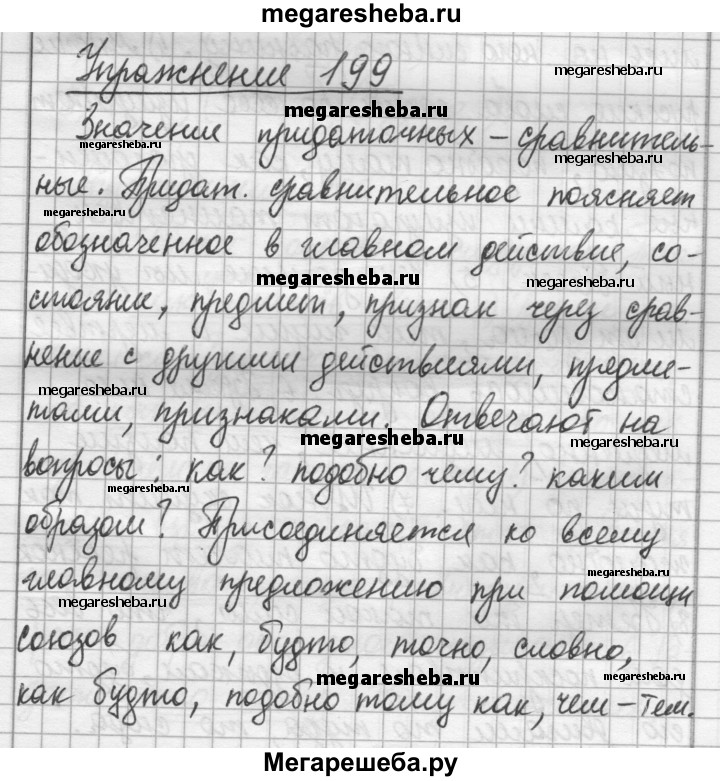 megaresheba.ru
Упражнение 199
megaresheba.ru
megaresheba.ru
Значение придаточных – сравнитель-
megaresheba.ru
ные. Придат. сравнительное поясняет
megaresheba.ru
обозначенное в главном действие, со-
megaresheba.ru
стояние, предмет, признак через срав-
megaresheba.ru
нение с другими действиями, предме-
megaresheba.ru
тами, признаками. Отвечают на
megaresheba.ru
megaresheba.ru
вопросы: как? подобно чему? каким
megaresheba.ru
образом? Присоединяется ко всему
главному предложению при помощи
megaresheba.ru
megaresheba.ru
союзов как, будто, точно, словно,
megaresheba.ru
megaresheba.ru
как будто, подобно тому как, чем – тем.
Мегарешеба.ру